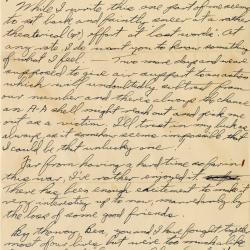 While I write this one part of me seems
to sit back and faintly sneer at a rather
theatrical (sp?) effort at "last words". At
any rate I do want you to know something
of what I feel. — Two more days and we are
supposed to give air support to an action
which may undoubtedly subtract from
our number and there's always the chance
an A-A shell might reach out and pick me
out as a victim. I'll trust in my luck as
always as it somehow seems impossible that
I could be that unlucky one.
Far from having a hard time so far in
this war, I've rather enjoyed it.
There has been enough excitement to make it
very interesting up to now, marred only by
the loss of some good friends.
By the way, you and I have fought together
most of our lives but were too much